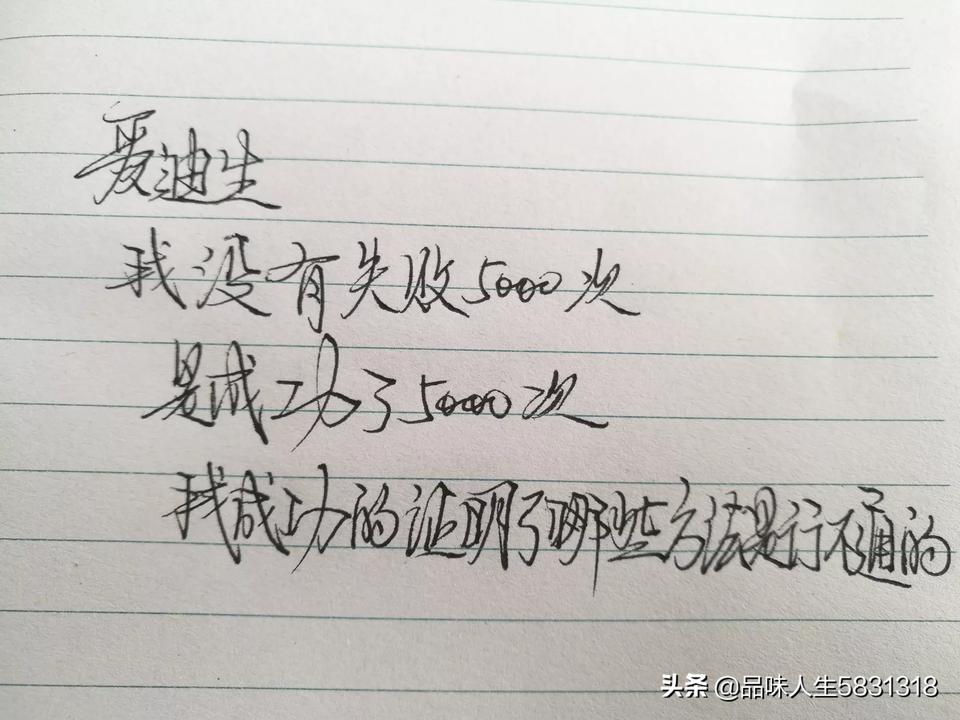 爱迪生
我没有失败5000次
是成功了5000次
我成功的证明了哪些方法是行不通的
头条 @品味人生5831318